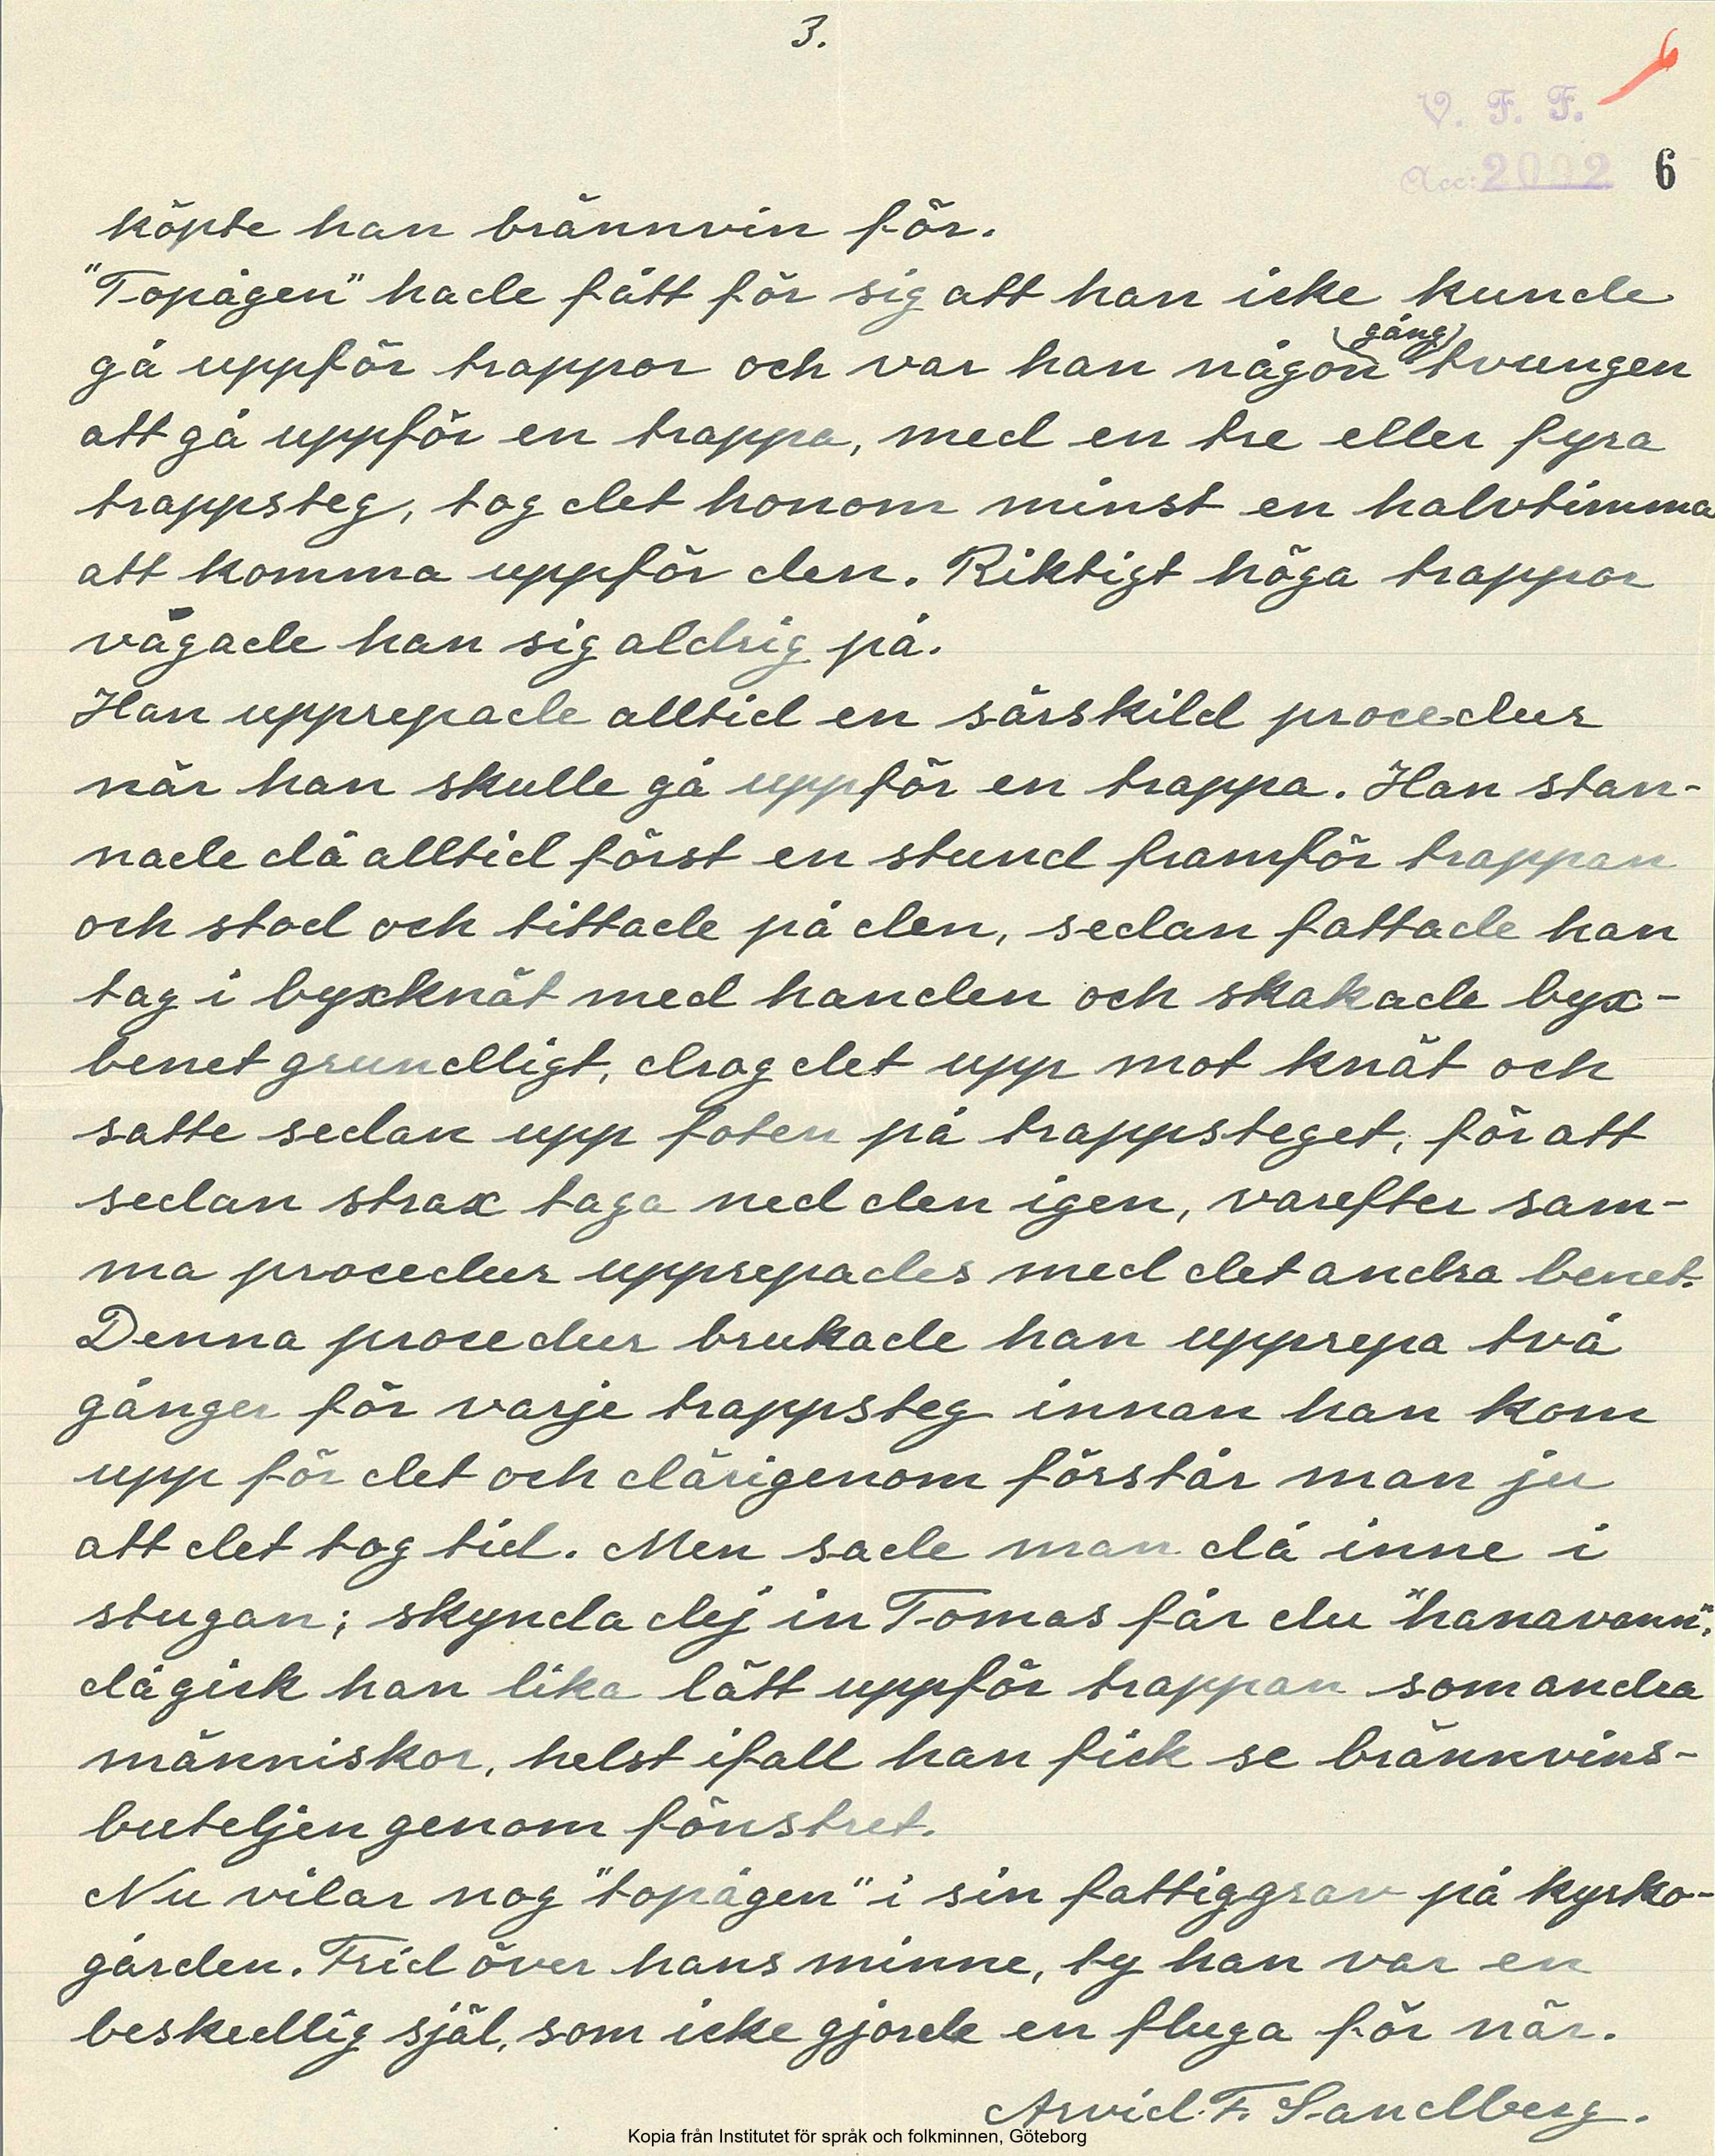 3.
6
V. F. F.
Acc: 2002 6
köpte han brännvin för.
"Topågen" hade fått för sig att han icke kunde
gång
gå uppför trappor och var han någon tvungen
att gå uppför en trappa, med en tre eller fyra
trappsteg, tog det honom minst en halvtimma
att komma uppför den. Riktigt höga trappor
vågade han sig aldrig på.
Han upprepade alltid en särskild procedur
när han skulle gå uppför en trappa. Han stan-
nade då alltid först en stund framför trappan
och stod och tittade på den, sedan fattade han
tag i byxknät med handen och skakade byx-
benet grundligt, drog det upp mot knät och
satte sedan upp foten på trappsteget, för att
sedan strax taga ned den igen, varefter sam-
ma procedur upprepades med det andra benet.
Denna procedur brukade han upprepa två
gånger för varje trappsteg innan han kom
upp för det och därigenom förstår man ju
att det tog tid. Men sade man då inne i
stugan; skynda dej in Tomas får du "hanavann",
då gick han lika lätt uppför trappan som andra
människor, helst ifall han fick se brännvins-
buteljen genom fönstret.
Nu vilar nog "topågen" i sin fattiggrav på kyrko-
gården. Frid över hans minne, ty han var en
beskedlig själ, som icke gjorde en fluga för när.
Arvid. F. Sandberg.
Kopia från Institutet för språk och folkminnen, Göteborg